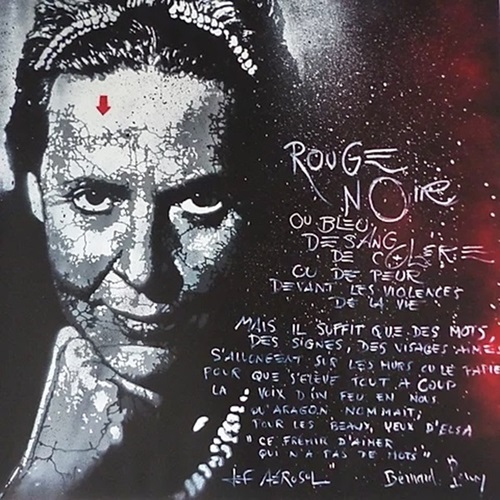 ROUGE
NOIRE
OU BLEU
DE SANG
DE COLÈRE
OU DE PEUR
DEVANT LES VIOLENCES
DE LA VIE
MAIS IL SUFFIT QUE DES MOTS,
DES SIGNES, DES VISAGES AIMÉS
S'ALLONGENT SUR LES MURS OU LE PAPIER
POUR QUE S'ÉLÈVE TOUT A COUP
LA VOIX D'UN FEU EN NOUS
QU'ARAGON NOMMAIT,
POUR LES BEAUX YEUX D'ELSA
"CE FRÉMIR D'AIMER
QUI N'A PAS DE MOTS"
JEF AÉROSOL
Bernard